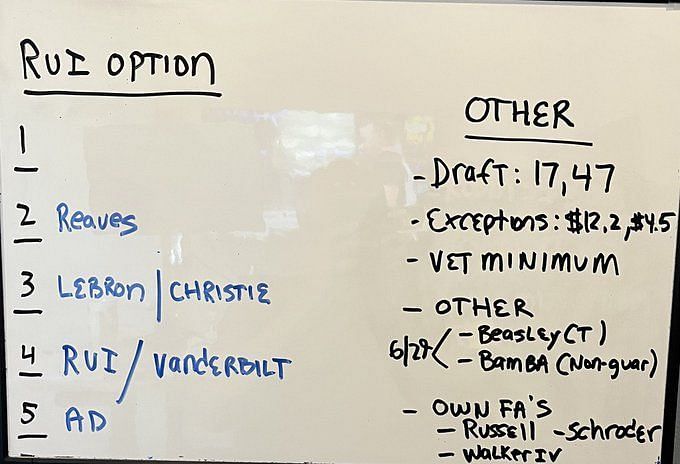 RUI OPTION
1
2 Reaves
3 LEBRON | CHRISTIE
4 RUI / VANDERBILT
5 AD
OTHER
- Draft: 17, 47
- Exceptions: $12.2, $4.5
- VET MINIMUM
- OTHER
6/29 < - Beasley (T)
- BAMBA (Non-guar)
- OWN FA'S
- Russell - Schroder
- Walker IV